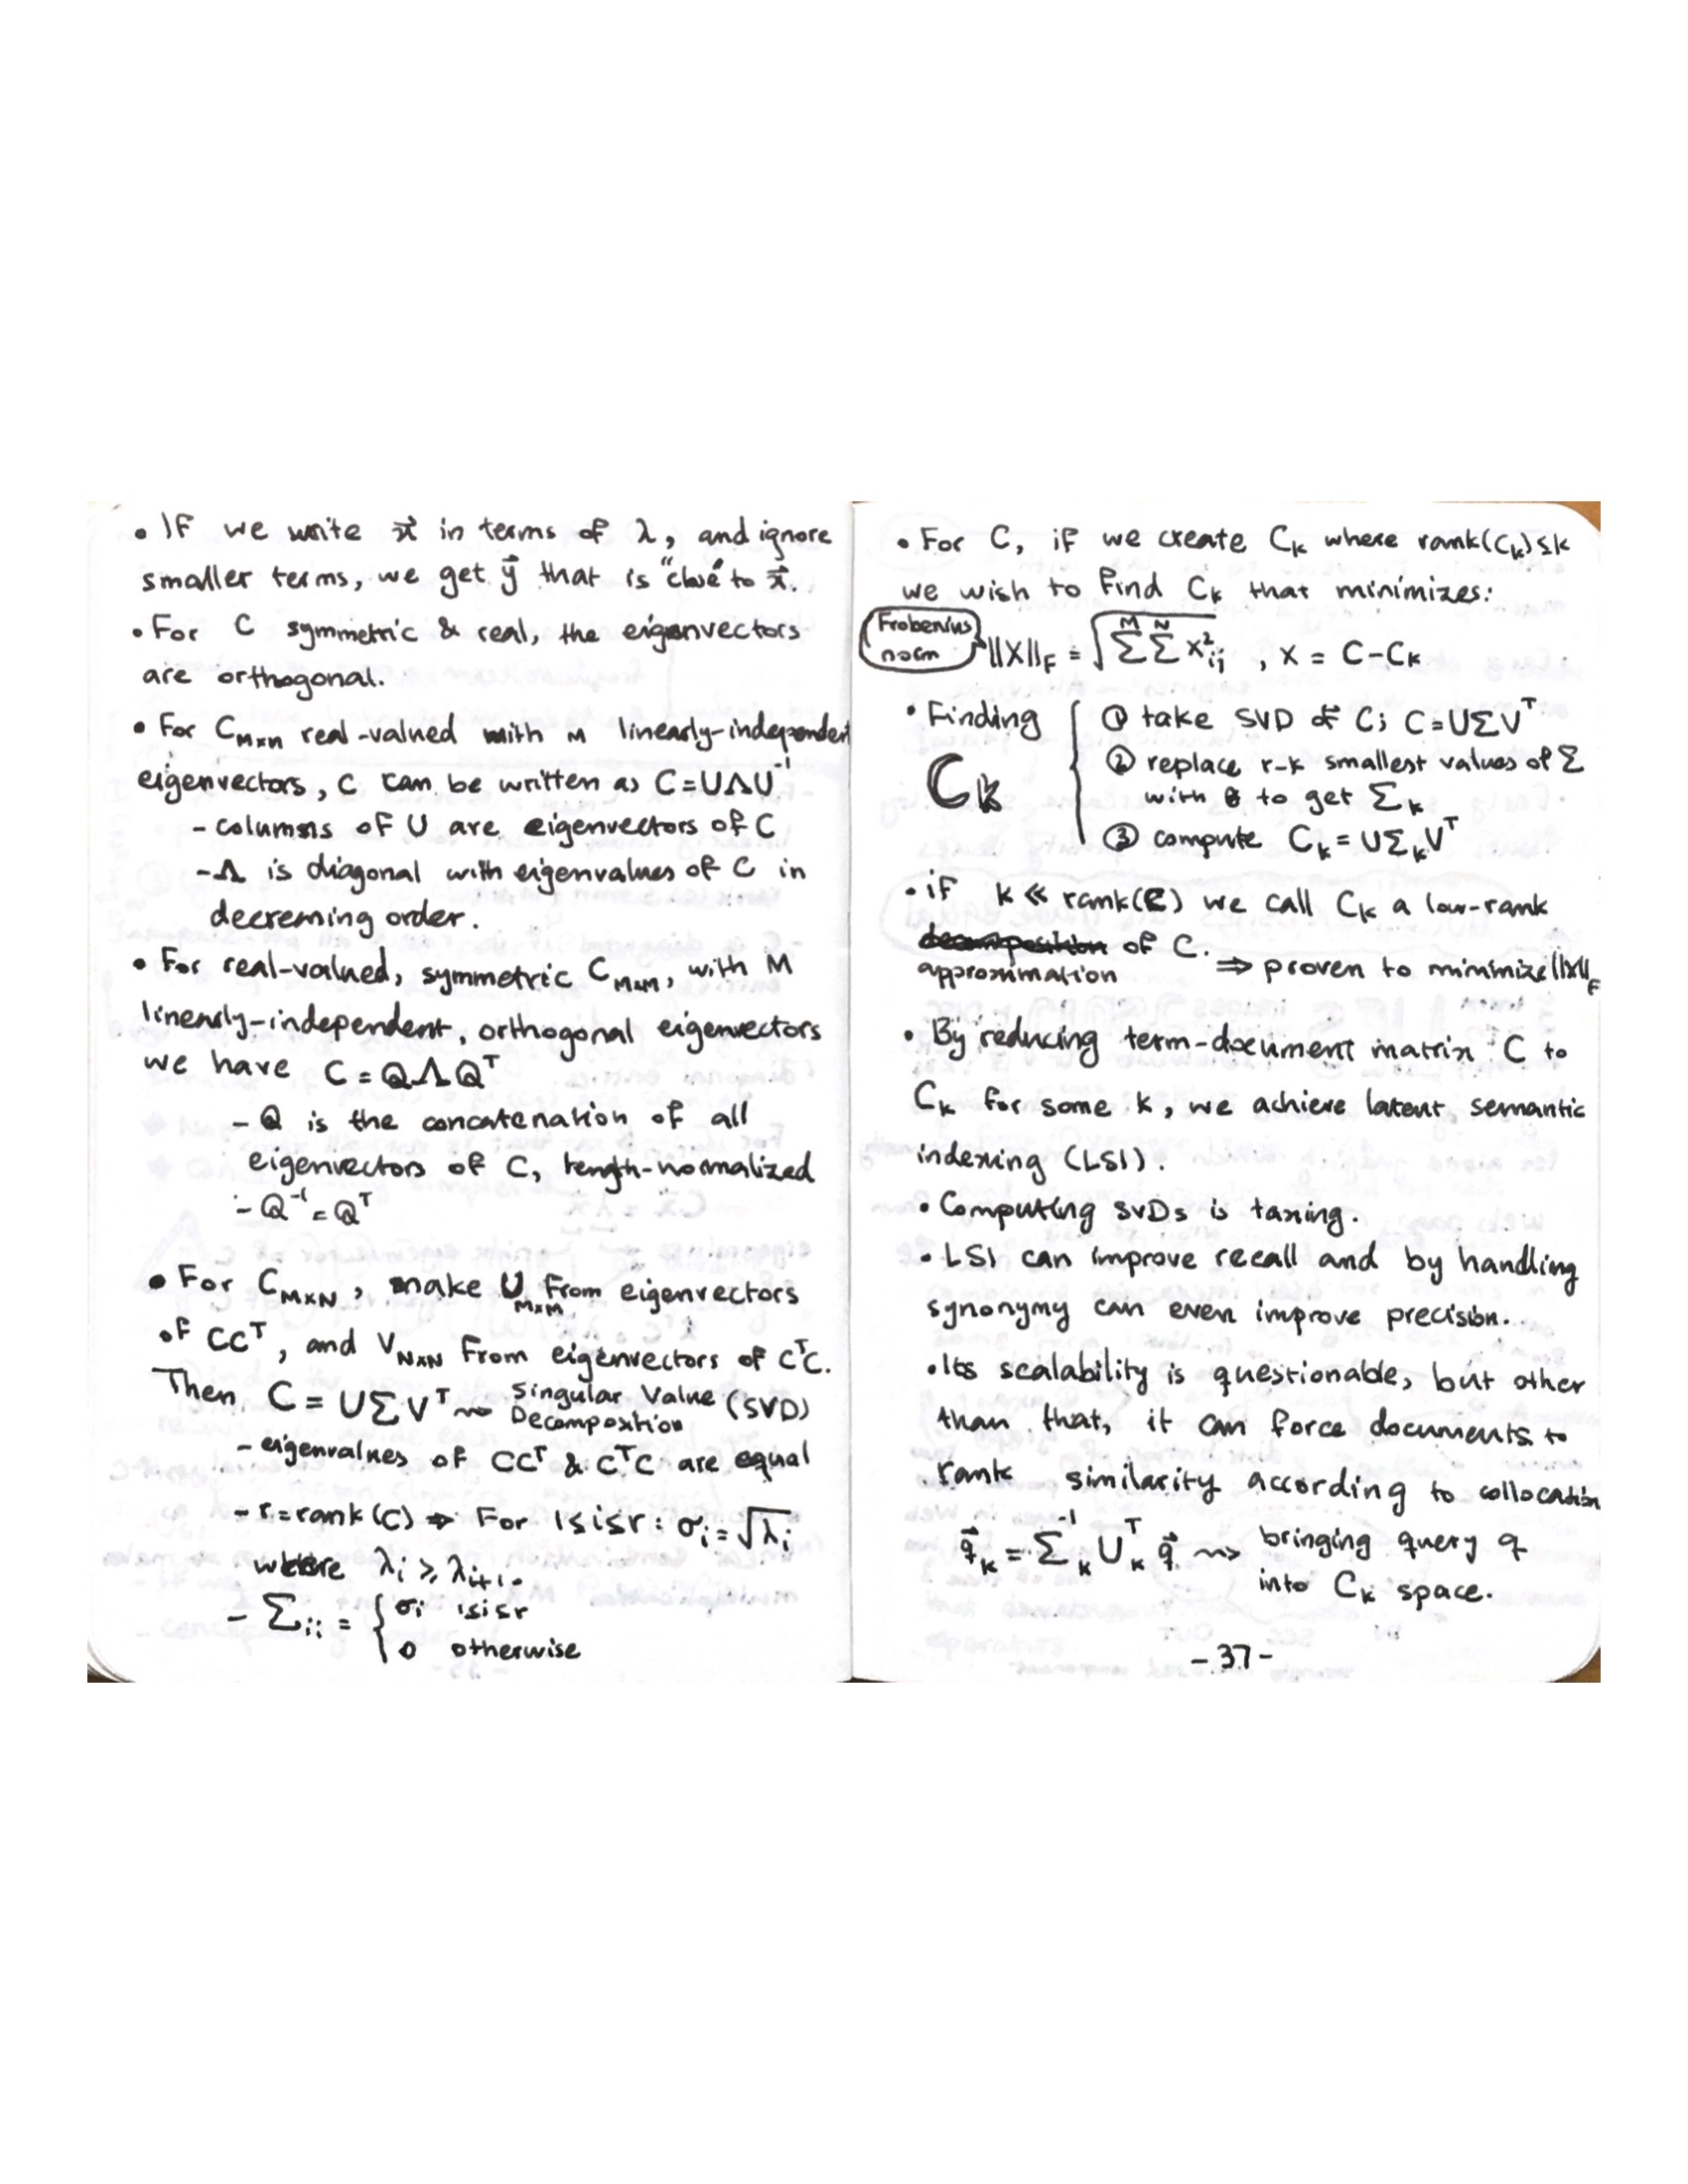 • If we write x⃗ in terms of λ, and ignore
smaller terms, we get y⃗ that is "close" to x⃗.
• For C symmetric & real, the eigenvectors
are orthogonal.
• For C_M×M real-valued with M linearly-independent
eigenvectors, C can be written as C=UΛU⁻¹
- columns of U are eigenvectors of C
- Λ is diagonal with eigenvalues of C in
decreasing order.
• For real-valued, symmetric C_M×M, with M
linearly-independent, orthogonal eigenvectors
we have C = QΛQᵀ
- Q is the concatenation of all
eigenvectors of C, length-normalized
- Q⁻¹ = Qᵀ
• For C_M×N, make U_M×M from eigenvectors
of CCᵀ, and V_N×N from eigenvectors of CᵀC.
Then C = UΣVᵀ ⇝ Singular Value Decomposition (SVD)
- eigenvalues of CCᵀ & CᵀC are equal
- r=rank(C) ⇒ For 1≤i≤r: σᵢ=√λᵢ
where λᵢ ≥ λᵢ₊₁.
- Σᵢᵢ = { σᵢ 1≤i≤r
0 otherwise
• For C, if we create C_k where rank(C_k)≤k
we wish to find C_k that minimizes:
Frobenius norm } ||X||_F = √(Σ^M Σ^N X²ᵢⱼ) , X = C-C_k
• Finding C_k { ① take SVD of C; C=UΣVᵀ
② replace r-k smallest values of Σ
with 0 to get Σ_k
③ compute C_k = UΣ_kVᵀ
• if k ≪ rank(C) we call C_k a low-rank
decomposition of C.
approximation ⇒ proven to minimize ||X||_F
• By reducing term-document matrix C to
C_k for some k, we achieve latent semantic
indexing (LSI).
• Computing SVDs is taxing.
• LSI can improve recall and by handling
synonymy can even improve precision.
• Its scalability is questionable, but other
than that, it can force documents to
rank similarity according to collocation
q⃗_k = Σ⁻¹_k Uᵀ_k q⃗ ⇝ bringing query q
into C_k space.
- 37 -